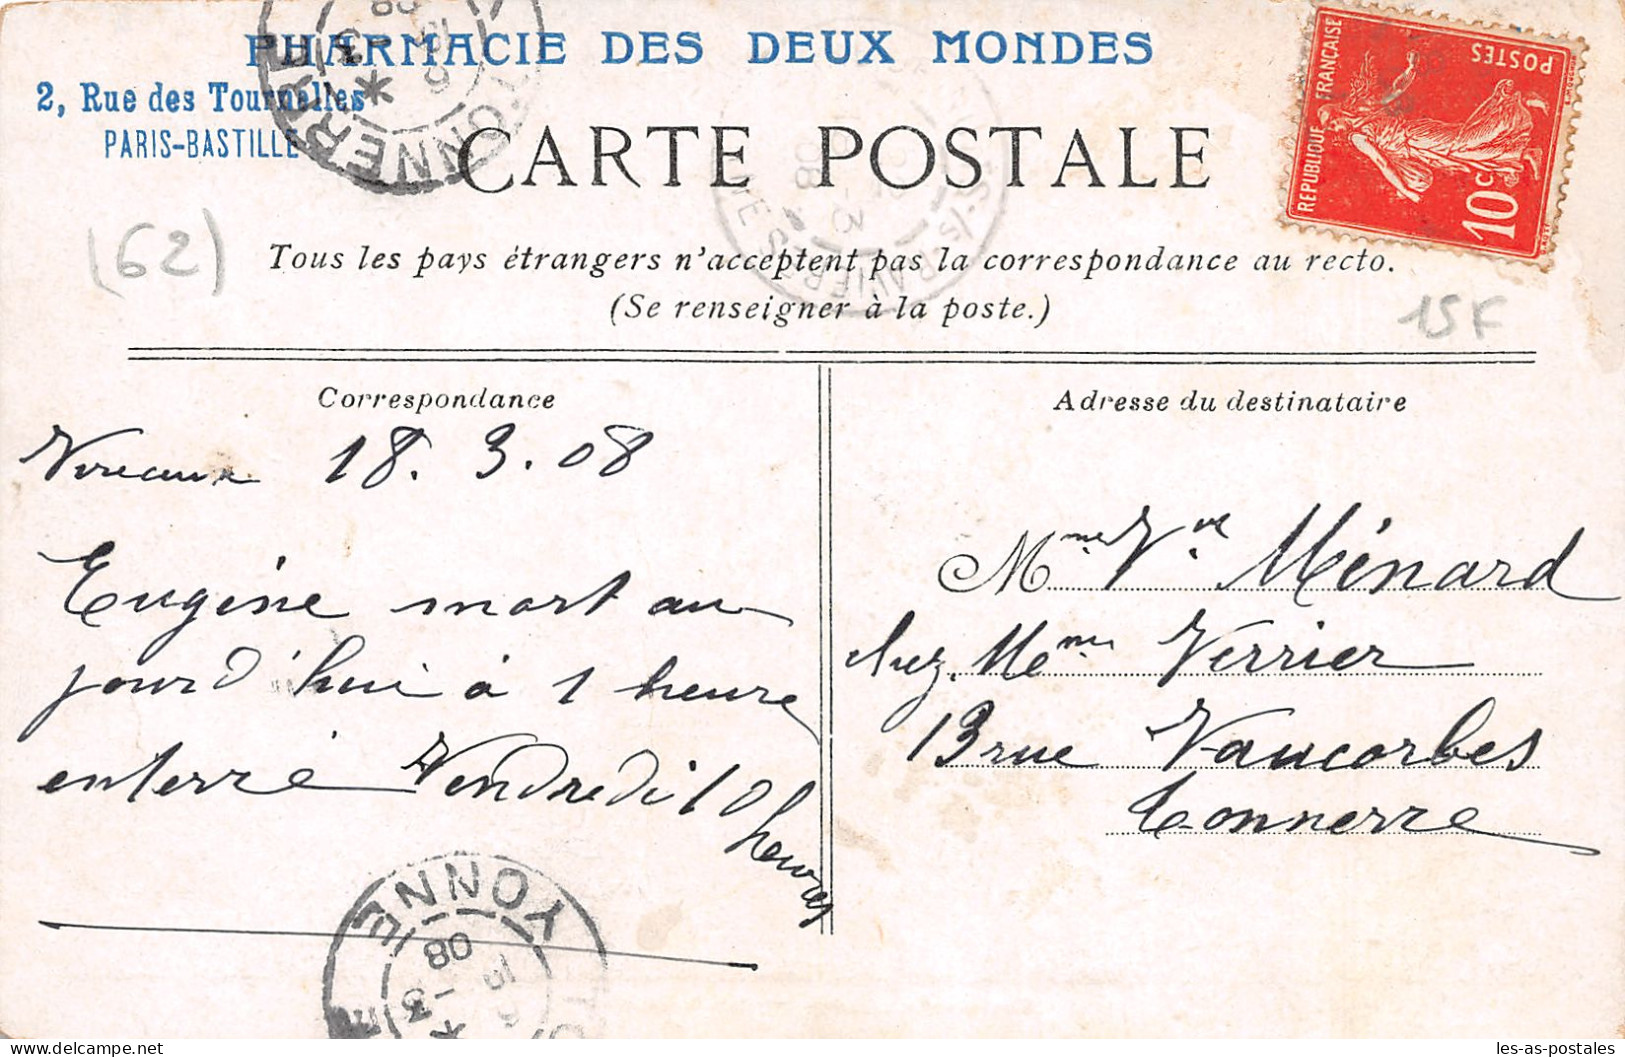 PHARMACIE DES DEUX MONDES
2, Rue des Tournelles
PARIS-BASTILLE
TONNERRE
CARTE POSTALE
REPUBLIQUE FRANÇAISE
POSTES
10 c
(62)
Tous les pays étrangers n'acceptent pas la correspondance au recto.
(Se renseigner à la poste.)
15F
Correspondance
Vireaux 18. 3. 08
Eugéne mort au
jourd'hui à 1 heure
enterré Vendredi 10
heures
YONNE
08
Adresse du destinataire
Mme Vve Ménard
chez Mme Verrier
13 rue Vaucorbes
Tonnerre
les-as-postales